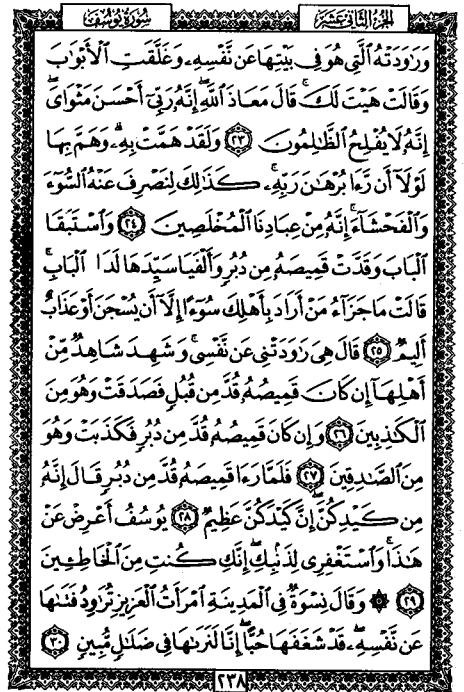 الجزء الثاني عشر سورة يوسف
وَرَٰوَدَتْهُ ٱلَّتِى هُوَ فِى بَيْتِهَا عَن نَّفْسِهِۦ وَغَلَّقَتِ ٱلْأَبْوَٰبَ
وَقَالَتْ هَيْتَ لَكَ ۚ قَالَ مَعَاذَ ٱللَّهِ ۖ إِنَّهُۥ رَبِّىٓ أَحْسَنَ مَثْوَاىَ ۖ
إِنَّهُۥ لَا يُفْلِحُ ٱلظَّٰلِمُونَ ٢٣ وَلَقَدْ هَمَّتْ بِهِۦ ۖ وَهَمَّ بِهَا
لَوْلَآ أَن رَّءَا بُرْهَٰنَ رَبِّهِۦ ۚ كَذَٰلِكَ لِنَصْرِفَ عَنْهُ ٱلسُّوٓءَ
وَٱلْفَحْشَآءَ ۚ إِنَّهُۥ مِنْ عِبَادِنَا ٱلْمُخْلَصِينَ ٢٤ وَٱسْتَبَقَا
ٱلْبَابَ وَقَدَّتْ قَمِيصَهُۥ مِن دُبُرٍ وَأَلْفَيَا سَيِّدَهَا لَدَا ٱلْبَابِ ۚ
قَالَتْ مَا جَزَآءُ مَنْ أَرَادَ بِأَهْلِكَ سُوٓءًا إِلَّآ أَن يُسْجَنَ أَوْ عَذَابٌ
أَلِيمٌ ٢٥ قَالَ هِىَ رَٰوَدَتْنِى عَن نَّفْسِى ۚ وَشَهِدَ شَاهِدٌ مِّنْ
أَهْلِهَآ إِن كَانَ قَمِيصُهُۥ قُدَّ مِن قُبُلٍ فَصَدَقَتْ وَهُوَ مِنَ
ٱلْكَٰذِبِينَ ٢٦ وَإِن كَانَ قَمِيصُهُۥ قُدَّ مِن دُبُرٍ فَكَذَبَتْ وَهُوَ
مِنَ ٱلصَّٰدِقِينَ ٢٧ فَلَمَّا رَءَا قَمِيصَهُۥ قُدَّ مِن دُبُرٍ قَالَ إِنَّهُۥ
مِن كَيْدِكُنَّ ۖ إِنَّ كَيْدَكُنَّ عَظِيمٌ ٢٨ يُوسُفُ أَعْرِضْ عَنْ
هَٰذَا ۚ وَٱسْتَغْفِرِى لِذَنۢبِكِ ۖ إِنَّكِ كُنتِ مِنَ ٱلْخَاطِـِٔينَ
٢٩ ۞ وَقَالَ نِسْوَةٌ فِى ٱلْمَدِينَةِ ٱمْرَأَتُ ٱلْعَزِيزِ تُرَٰوِدُ فَتَىٰهَا
عَن نَّفْسِهِۦ ۖ قَدْ شَغَفَهَا حُبًّا ۖ إِنَّا لَنَرَىٰهَا فِى ضَلَٰلٍ مُّبِينٍ ٣٠
٢٣٨